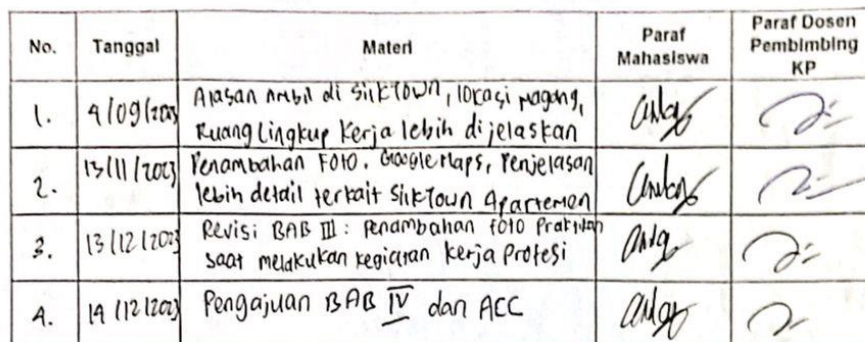 No. Tanggal Materi Paraf Mahasiswa Paraf Dosen Pembimbing KP
1. 4/09/2023 Alasan ambil di SilkTown, lokasi magang,
Ruang Lingkup Kerja lebih dijelaskan
2. 13/11/2023 Penambahan Foto, Google Maps, Penjelasan
lebih detail terkait SilkTown Apartemen
3. 13/12/2023 Revisi BAB III : penambahan foto Praktikan
saat melakukan kegiatan Kerja Profesi
4. 14/12/2023 Pengajuan BAB IV dan ACC